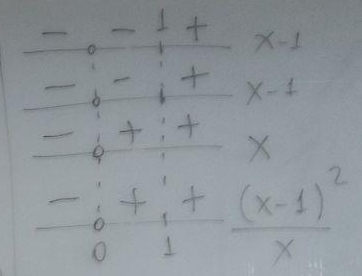 - - 1 + x-1
- - + x-1
- + + x
- + + (x-1)²/x
0 1